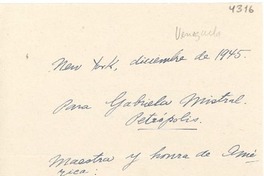 4316
Venezuela
New York, diciembre de 1945.
Para Gabriela Mistral.
Petrópolis.
Maestra y honra de Amé
rica: